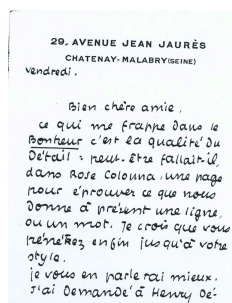 29, AVENUE JEAN JAURÈS
CHATENAY-MALABRY (SEINE)
vendredi.
Bien chère amie,
ce qui me frappe dans le
Bonheur c'est la qualité du
Détail : peut-être fallait-il,
dans Rose Colonna, une page
pour éprouver ce que nous
donne à présent une ligne,
ou un mot. Je crois que vous
pénétrez enfin jusqu'à votre
style.
je vous en parlerai mieux.
J'ai Demandé à Henry Dé-